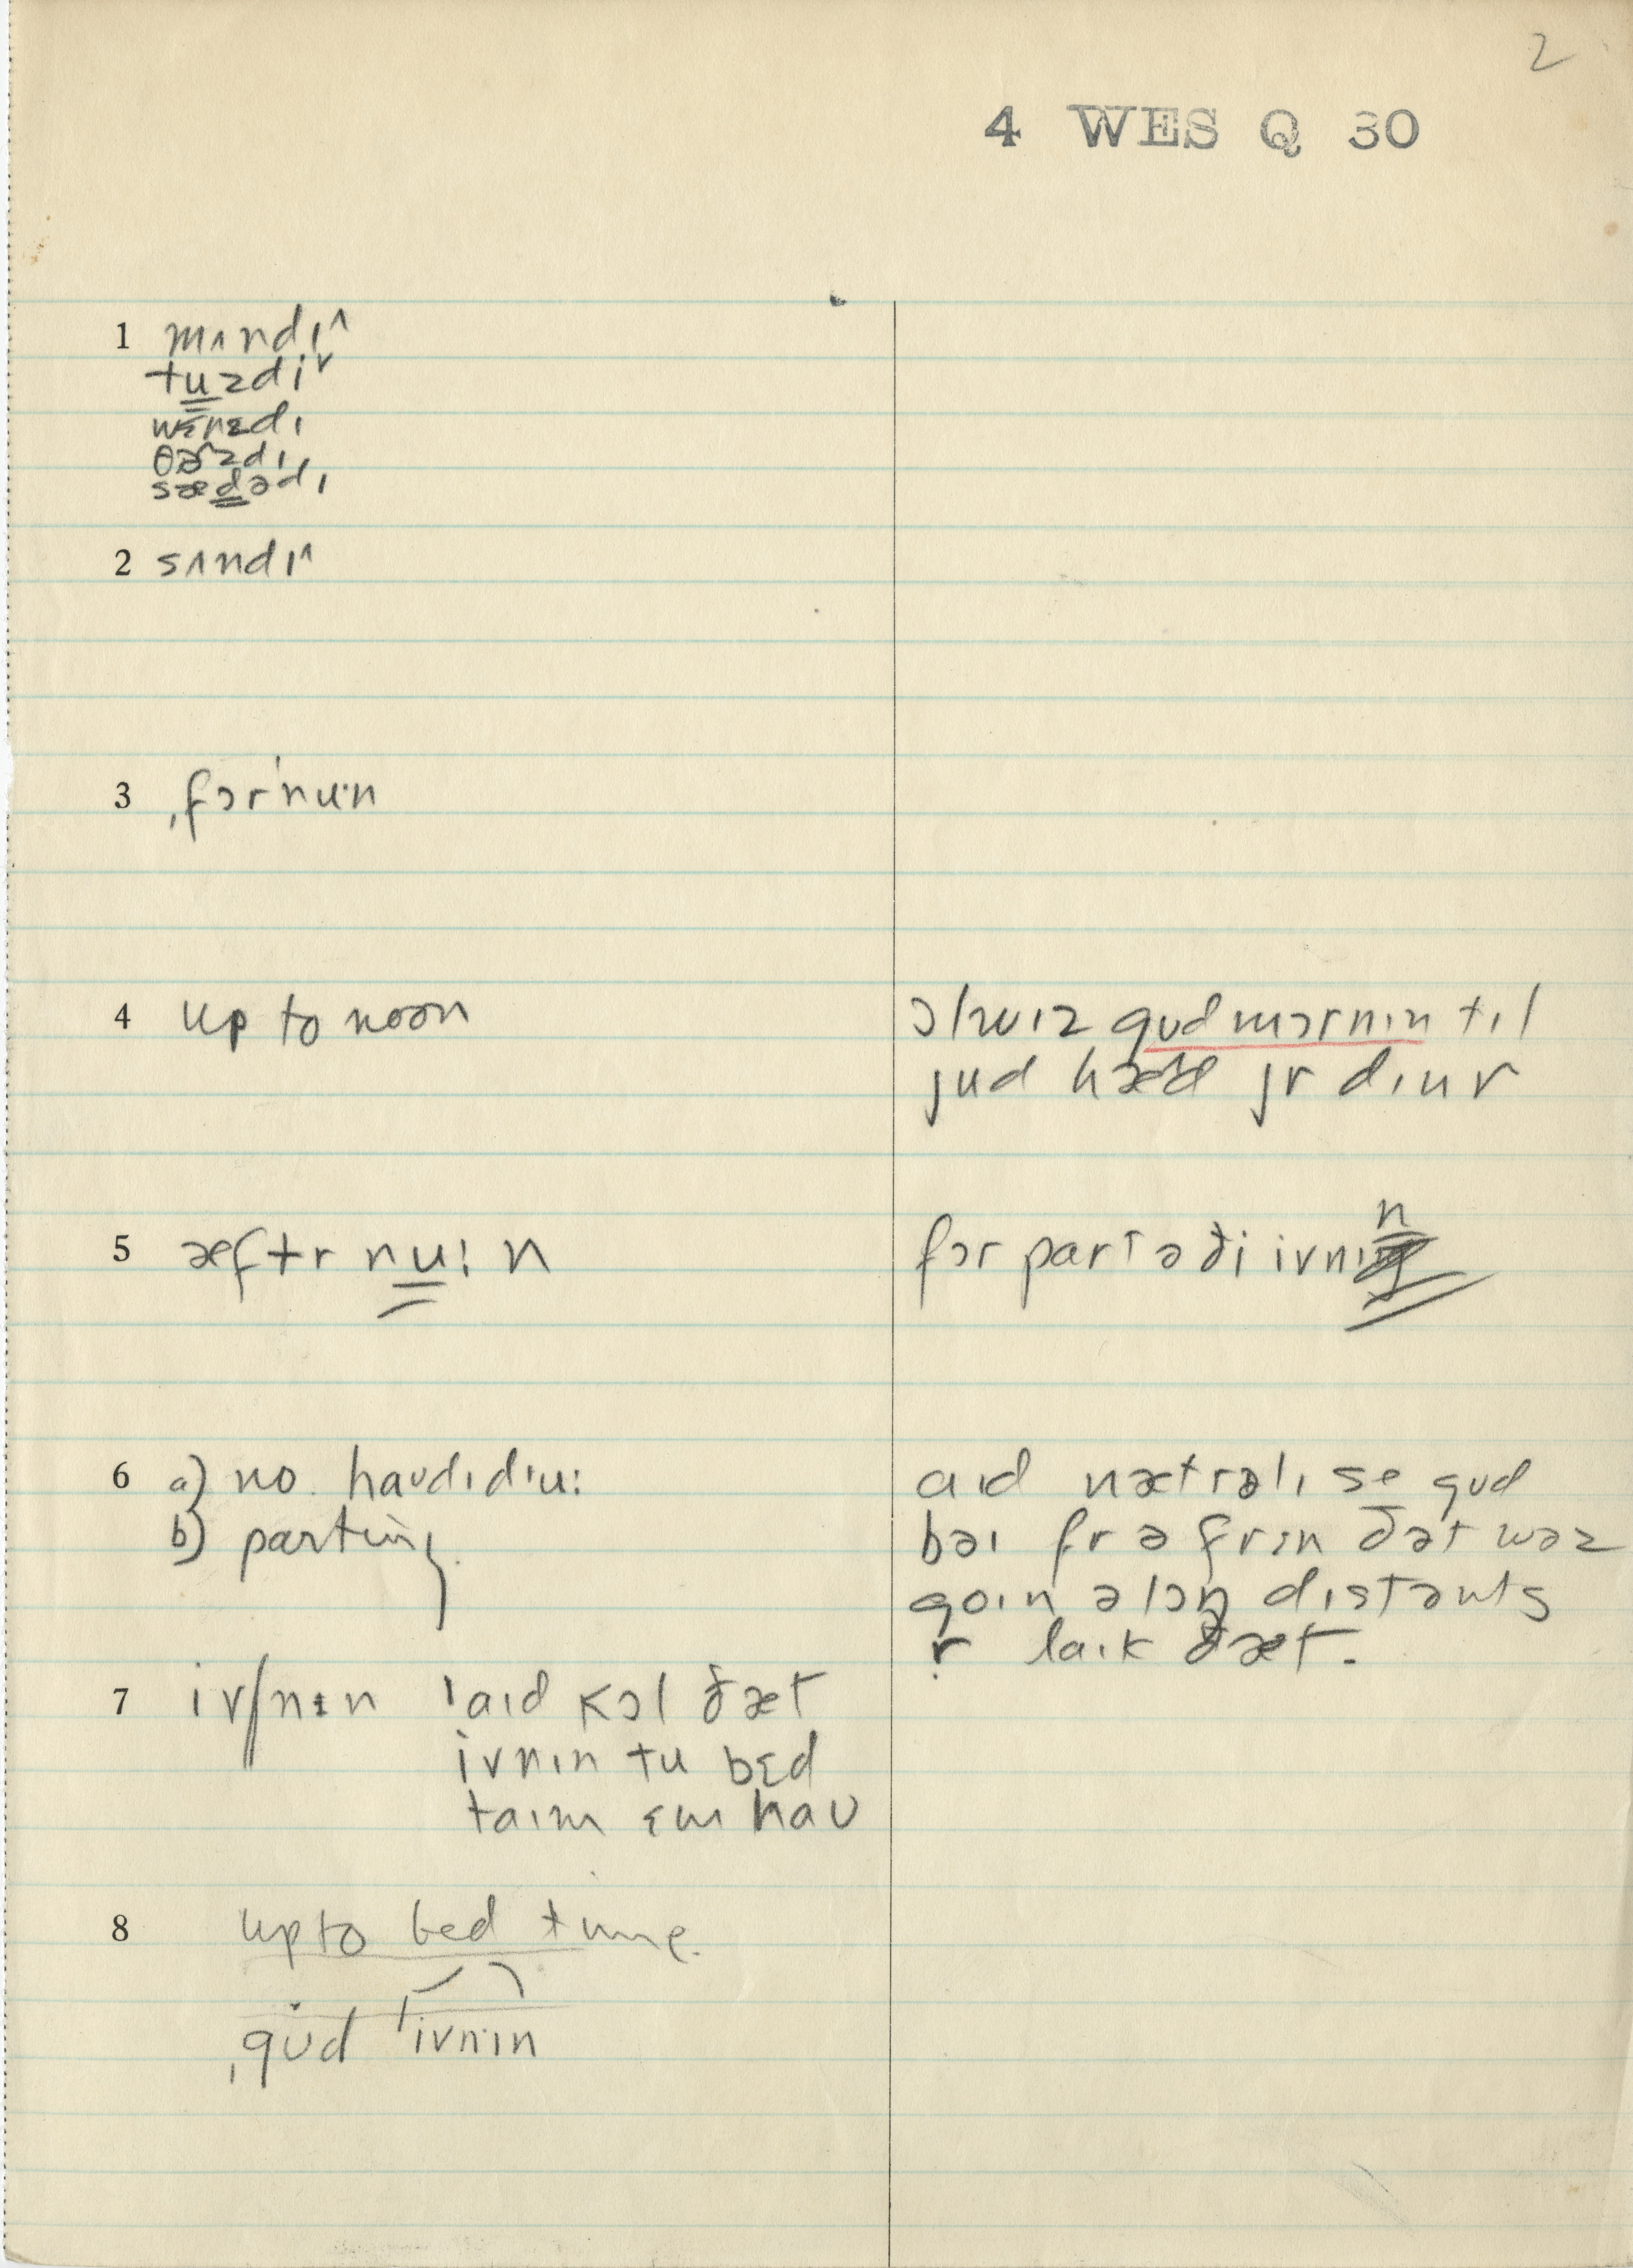 2
4 WES Q 30
1 mʌndɪ^
tuzdiˇ
wɛnzdɪ
θɚzdɪ
sædədɪ
2 sʌndɪ^
3 ˌfɔrˈnu·n
4 up to noon
ɔlwɪz gʊdmɔrnɪn tɪl
jud hæd jr dɪnr
5 æftr nu:n
fɔr part ə ði ivnɪn
6 a) no haʊdɪdu:
b) parting
aɪd nætrəlɪ se gʊd
baɪ fr ə frɛn ðət wəz
goɪn əlɔŋ dɪstənts
r laɪk ðæt.
7 ivnɪn ˈaɪd kɔl ðæt
ivnɪn tu bɛd
taɪm ɛm haʊ
8 up to bed time.
ˌgʊd ˈivnɪn